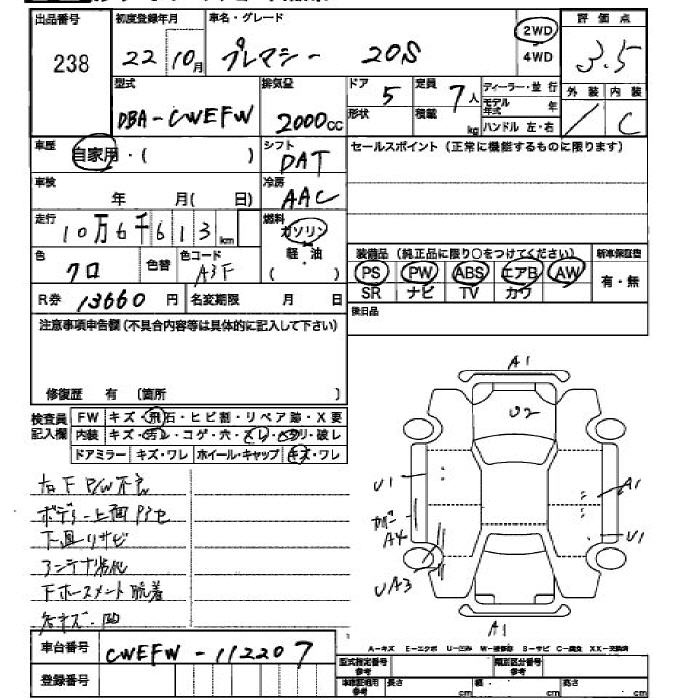 出品番号 初度登録年月 車名・グレード 評価点
238 22 10月 プレマシー 20S 2WD 4WD 3.5
型式 排気量 ドア 定員 ディーラー・並行 外装 内装
DBA-CWEFW 2000cc 5 7人 モデル年式 年 / C
形状 積載 kg ハンドル 左・右
車歴 自家用・( ) シフト DAT セールスポイント(正常に機能するものに限ります)
車検 年 月( 日) 冷房 AAC
走行 10万6千613km 燃料 ガソリン 軽・油 ( )
装備品(純正品に限り○をつけてください) 新車保証書
色 クロ 色替 色コード A3F
PS PW ABS エアB AW 有・無
SR ナビ TV カワ
R券 13660円 名変期限 月 日 後日品
注意事項申告欄(不具合内容等は具体的に記入して下さい)
修復歴 有 〔箇所 〕
検査員記入欄 FW キズ・飛石・ヒビ割・リペア跡・X要
内装 キズ・汚レ・コゲ・穴・スレ・ヘタリ・破レ
ドアミラー キズ・ワレ ホイール・キャップ キズ・ワレ
右下P/W不良
ボデー上面
下廻りサビ
アンテナ劣化
A1
U2
U1
A1
カバー A4
U1
UA3
A1
A-キズ E-エクボ U-凹み W-補修跡 S-サビ C-腐食 XX-交換済
車台番号 CWEFW-112207 型式指定番号 参考 類別区分番号 参考
登録番号 長さ cm 幅 cm 高さ cm